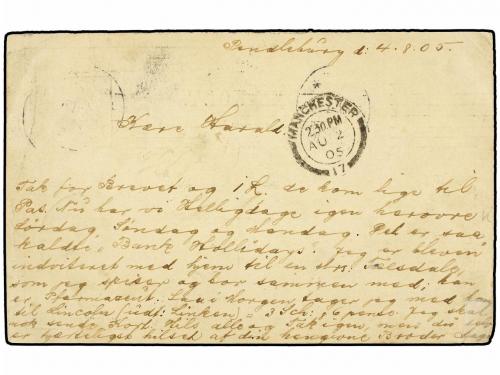 Pendlebury d: 4.8.05.
MANCHESTER
2.30 PM
AU 2
05
17
Kære Harald
Tak for Brevet og 1 K. de kom lige til
Pas. Nu har vi Helligdage igen herovre
Lørdag, Søndag og Mandag. Det er saa
kaldte "Bank Hollidays". Jeg er bleven
indviteret med hjem til en Mr. Teesdale,
som jeg spiser og bor sammen med; han
er Pharmaceut. Saa i Morgen tager jeg med
til Lincoln (udt: Linken) = 3 Sch: 6 pence. Jeg skal
nok sende Kort. Hils alle og Tak igen, men du
er hjerteligst hilset af din hengivne Broder